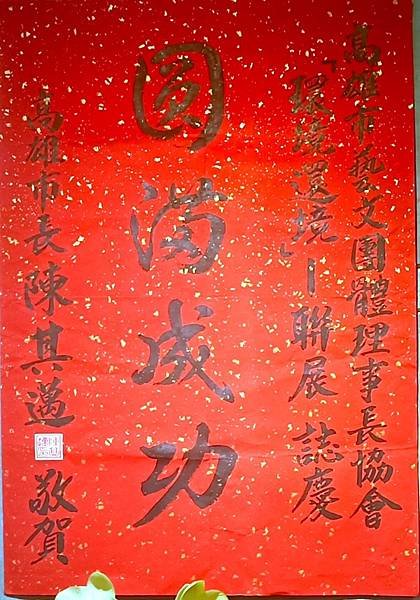 高雄市藝文團體理事長協會
「環境還境」—聯展 誌慶
圓滿成功
高雄市長陳其邁 敬賀